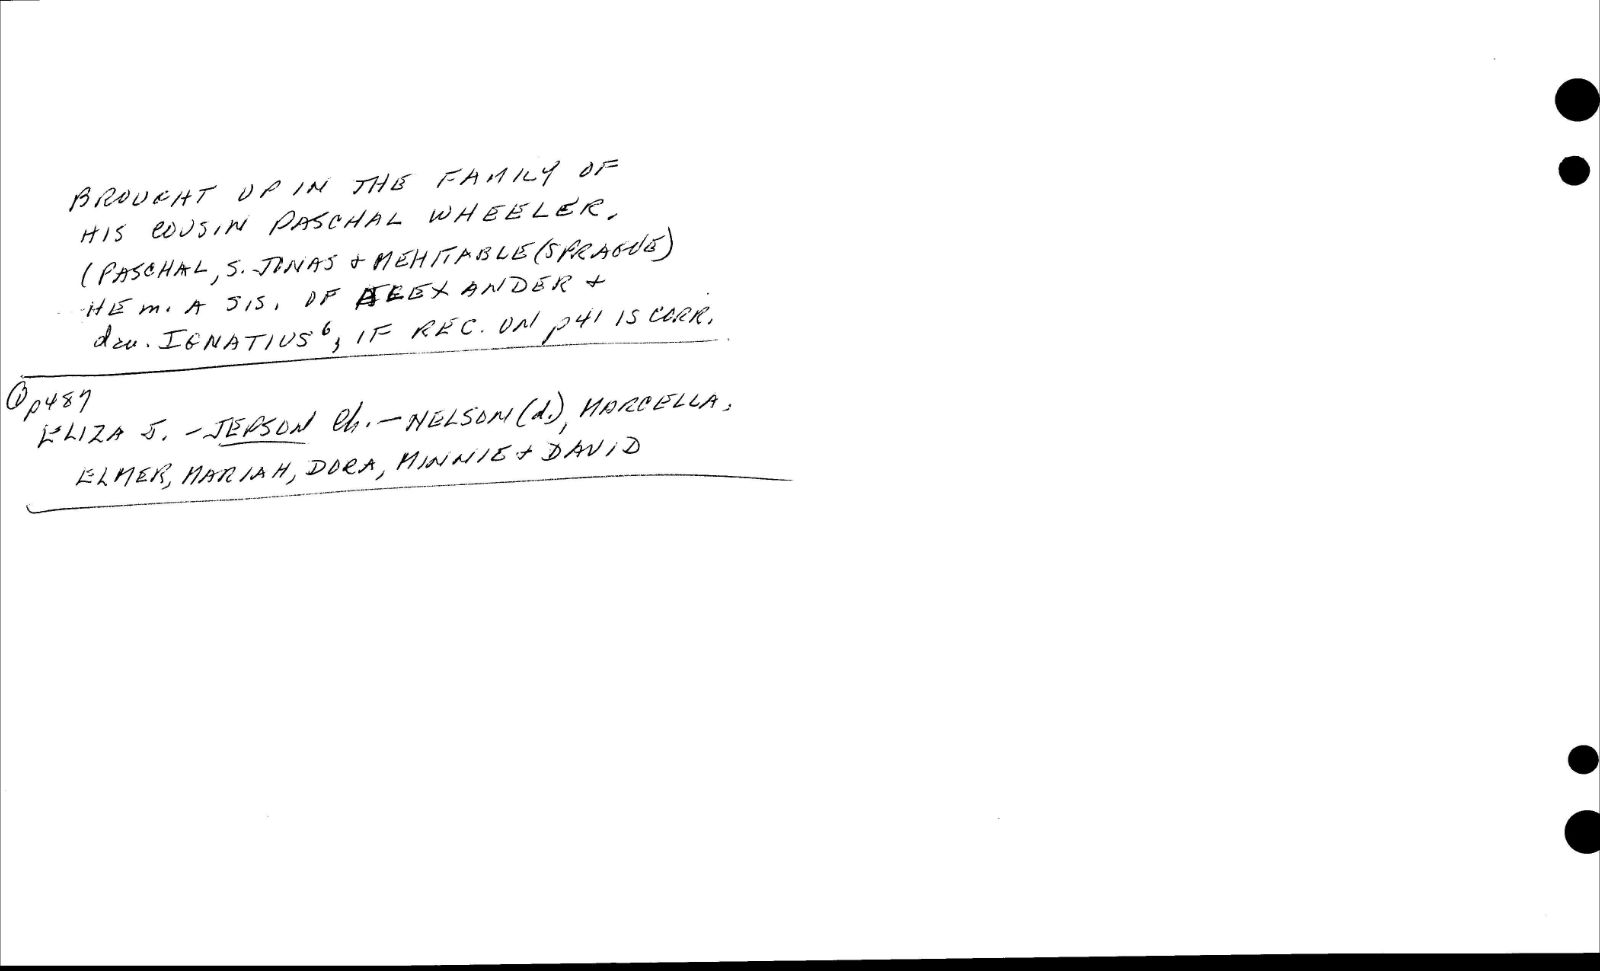 BROUGHT UP IN THE FAMILY OF
HIS COUSIN PASCHAL WHEELER.
(PASCHAL, S. JONAS + MEHITABLE (SPRAGUE)
HE m. A SIS. OF ALEXANDER +
dau. IGNATIUS⁶, IF REC. ON p41 IS CORR.
① p487
ELIZA J. – JEPSON Ch. – NELSON (d.), MARCELLA,
ELMER, MARIAH, DORA, MINNIE + DAVID